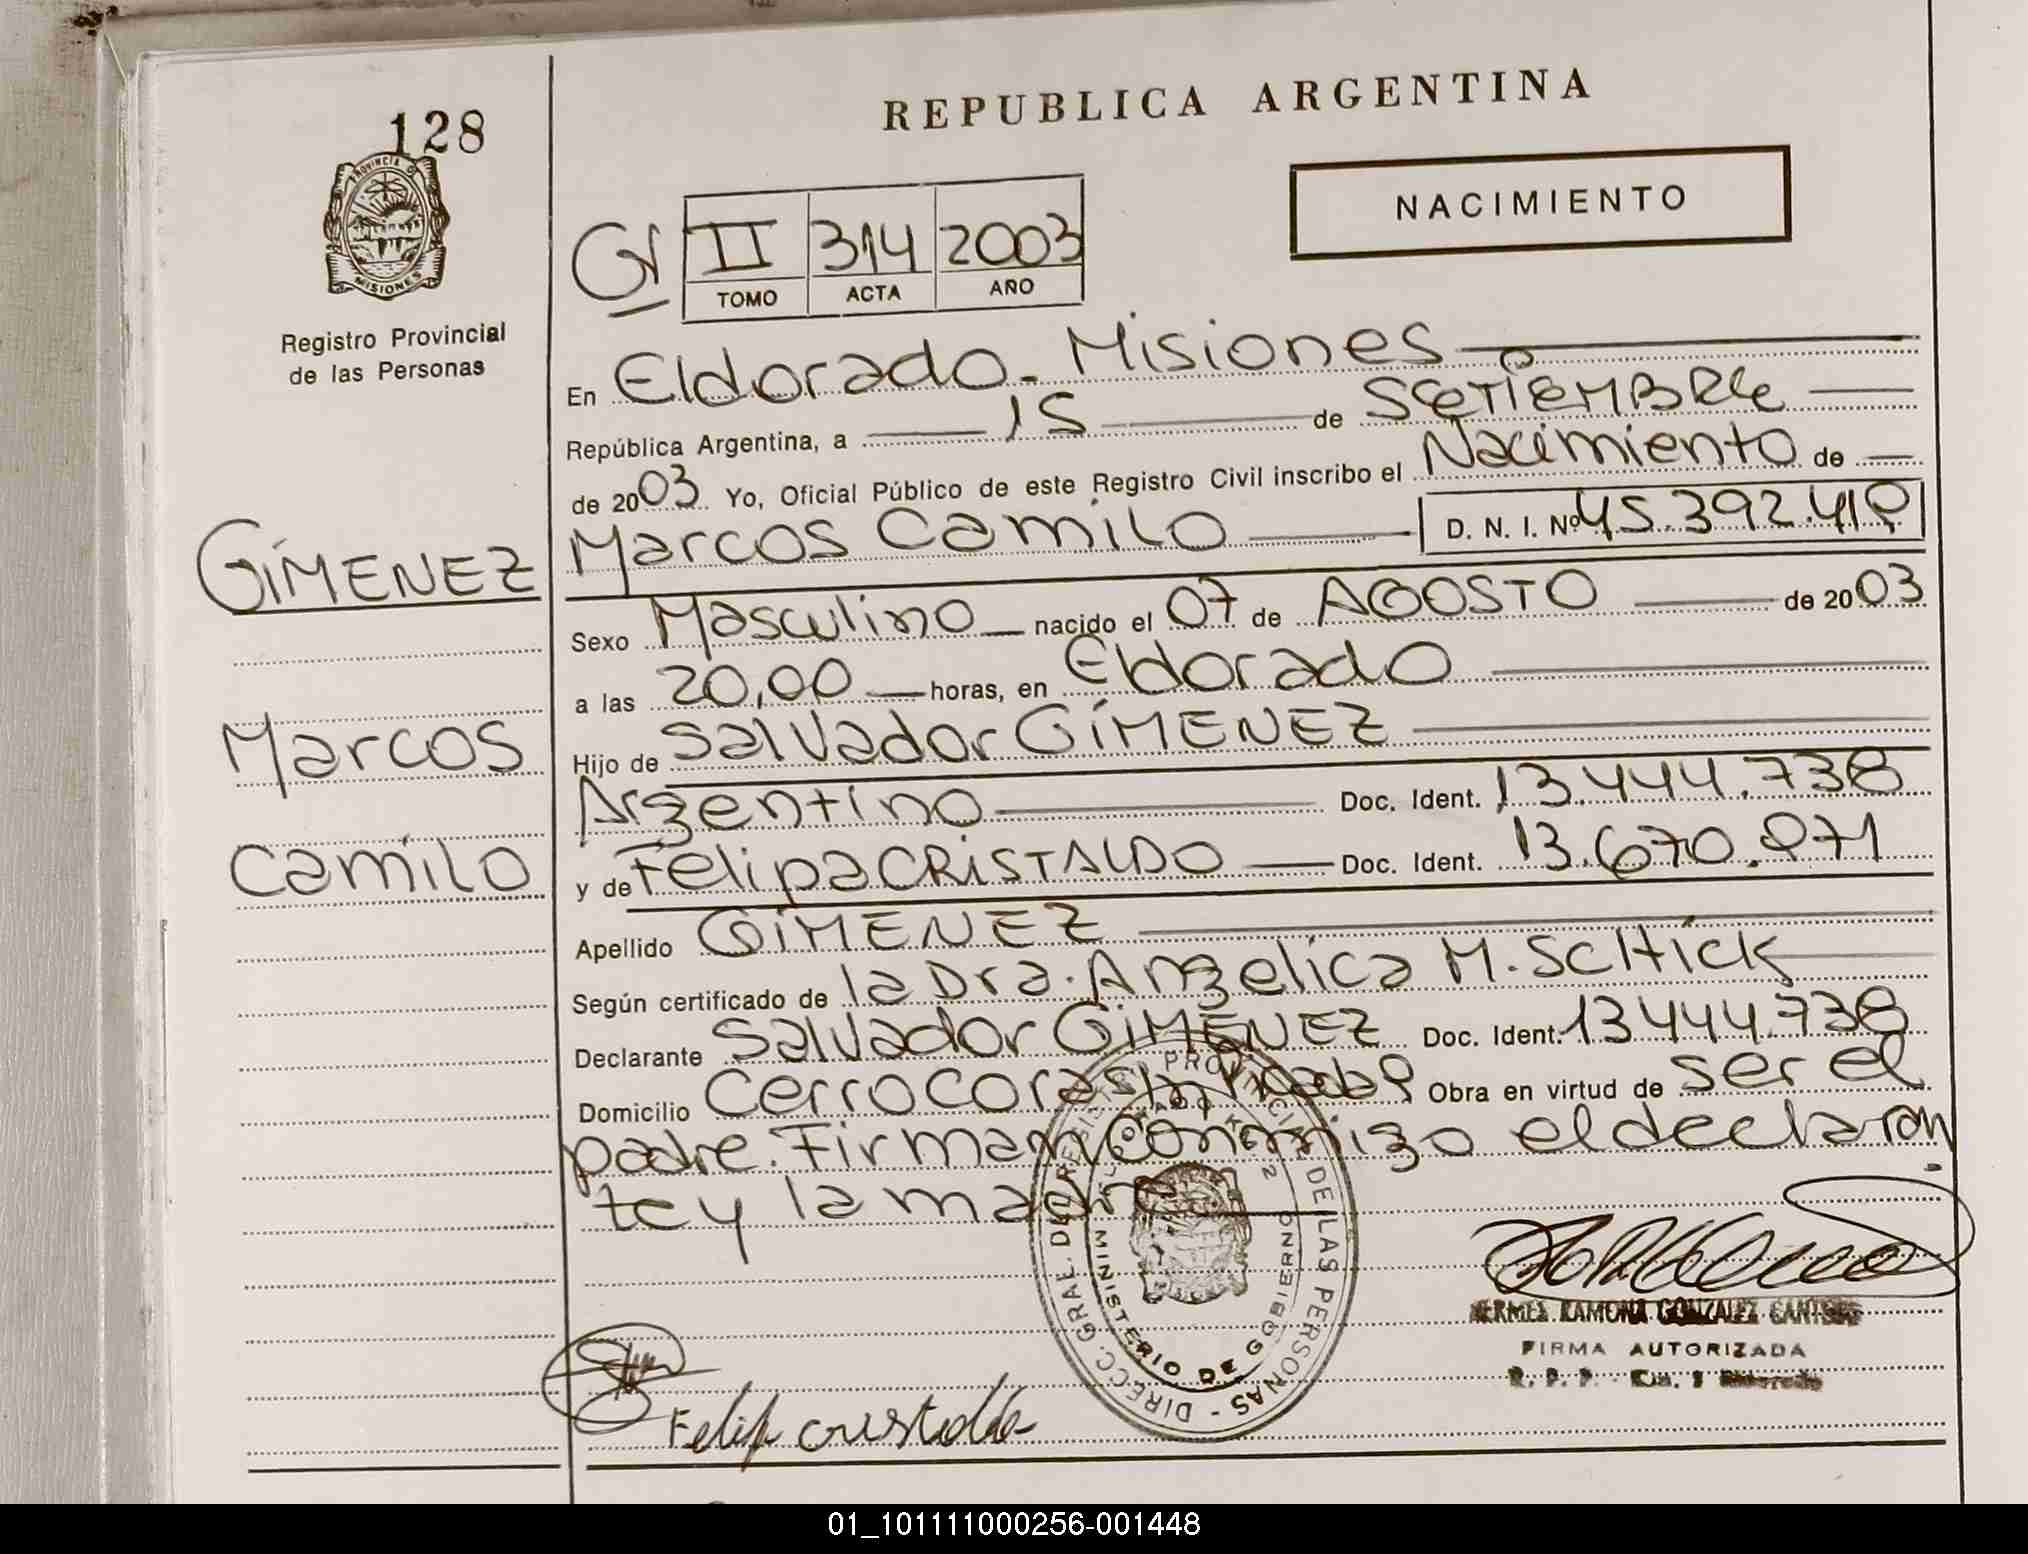 128
PROVINCIA DE
MISIONES
Registro Provincial
de las Personas
GIMENEZ
Marcos
Camilo
REPUBLICA ARGENTINA
NACIMIENTO
II 314 2003
TOMO ACTA AÑO
En Eldorado. Misiones
República Argentina, a 15 de SETIEMBRE
de 2003 Yo, Oficial Público de este Registro Civil inscribo el Nacimiento de
Marcos Camilo D. N. I. Nº 45.392.419
Sexo Masculino nacido el 07 de AGOSTO de 2003
a las 20,00 horas, en Eldorado
Hijo de Salvador GIMENEZ
Argentino Doc. Ident. 13.444.738
y de Felipa CRISTALDO Doc. Ident. 13.670.971
Apellido GIMENEZ
Según certificado de la Dra. Angelica M. SCHICK
Declarante Salvador GIMENEZ Doc. Ident. 13444.738
Domicilio Cerro Cora Obra en virtud de ser el
padre. Firman Conmigo el declaran
te y la madre
DIRECC. GRAL. DEL REGISTRO PROVINCIAL DE LAS PERSONAS
MINISTERIO DE GOBIERNO
HERMES RAMONA GONZALEZ
FIRMA AUTORIZADA
R. P. P. Eldorado
Felipa cristaldo
01_101111000256-001448